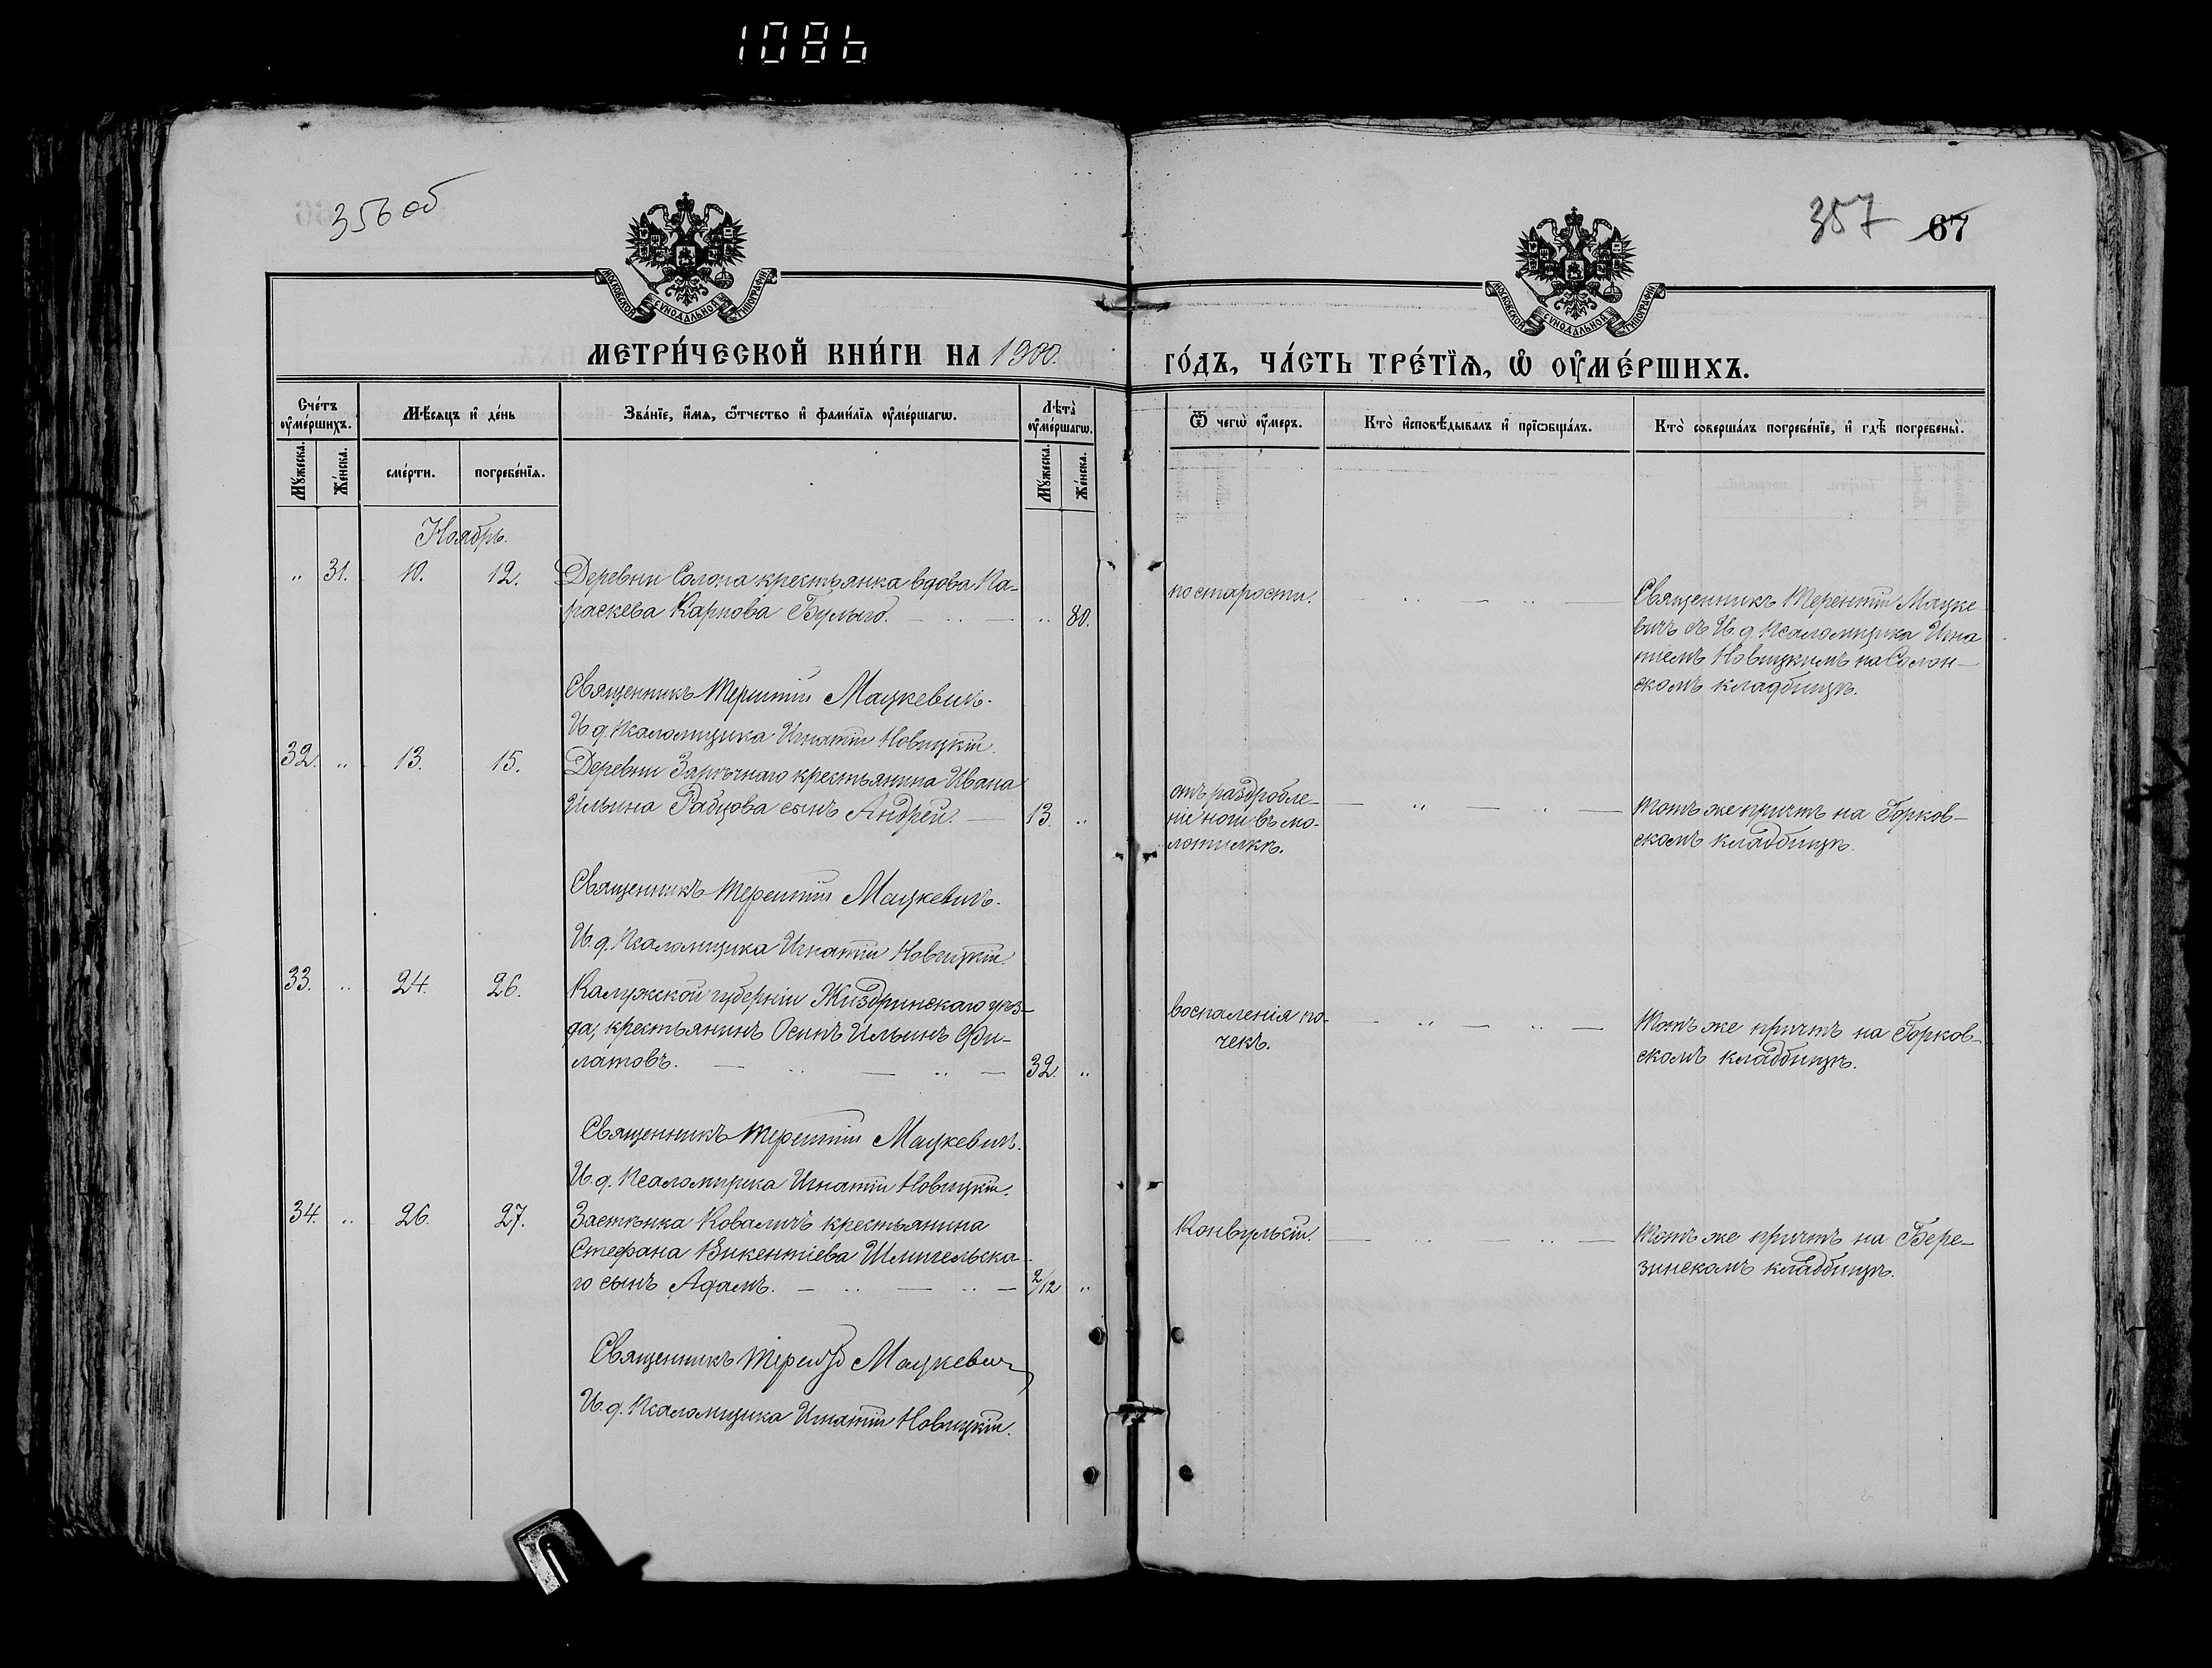 1086
356 об
357 67
МОСКОВСКОЙ СѴНОДАЛЬНОЙ ТИПОГРАФІИ
МОСКОВСКОЙ СѴНОДАЛЬНОЙ ТИПОГРАФІИ
МЕТРИ́ЧЕСКОЙ КНИ́ГИ НА 1900.
ГО́ДЪ, ЧА́СТЬ ТРЕ́ТЇѦ, Ѡ҆ ОУ҆МЕ́РШИХЪ.
Сче́тъ оу҆ме́ршихъ.
Мѣ́сѧцъ и҆ де́нь
Зва́нїе, и҆́мѧ, ѻ҆́тчество и҆ фами́лїѧ оу҆ме́ршагѡ.
Лѣта̀ оу҆ме́ршагѡ.
Ѿ чегѡ̀ оу҆́меръ.
Кто̀ и҆сповѣ́дывалъ и҆ прїѡбща́лъ.
Кто̀ соверша́лъ погребе́нїе, и҆ гдѣ̀ погребены̀.
Мꙋ́жеска.
Же́нска.
сме́рти.
погребе́нїѧ.
Мꙋ́жеска.
Же́нска.
Ноябрь.
" 31. 10. 12. Деревни Солона крестьянка вдова Па-
раскева Карпова Булыго. — " — " 80.
по старости. — " — " —
Священникъ Терентій Мацке
вичъ съ И. д. Псаломщика Игна
тіемъ Новицкимъ на Солон-
скомъ кладбищѣ.
Священникъ Терентій Мацкевичъ.
И. д. Псаломщика Игнатій Новицкій.
32. " 13. 15. Деревни Зарѣчнаго крестьянина Ивана
Ильина Рабцова сынъ Андрей. — 13. "
отъ раздробле-
ніе ноги въ мо-
лотилкѣ.
— " — " —
Тотъ же причтъ на Горков-
скомъ кладбищѣ.
Священникъ Терентій Мацкевичъ.
И. д. Псаломщика Игнатій Новицкій.
33. " 24. 26. Калужской губерніи Жиздринскаго уѣз-
да, крестьянинъ Осипъ Ильинъ Фи-
латовъ. — " — " — 32. "
воспаленія по-
чекъ.
— " — " —
Тотъ же причтъ на Горков-
скомъ кладбищѣ.
Священникъ Терентій Мацкевичъ.
И. д. Псаломщика Игнатій Новицкій.
34. " 26. 27. Застѣнка Коваличъ крестьянина
Стефана Викентіева Шмигельска-
го сынъ Адамъ. — " — " — 2/12 "
Конвульсіи. — " — " —
Тотъ же причтъ на Бере-
зинскомъ кладбищѣ.
Священникъ Терентій Мацкевичъ
И. д. Псаломщика Игнатій Новицкій.